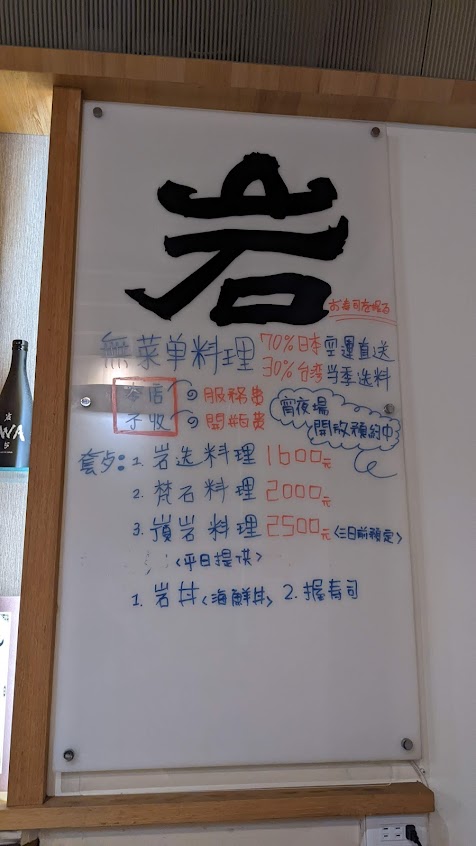 岩
お寿司を握る
無菜单料理 70%日本空運直送
30%台湾当季选料
本店 服務費
不收 開瓶費
宵夜場
開放預約中
套歺: 1. 岩选料理 1600元
2. 梵石料理 2000元
3. 頂岩料理 2500元 <三日前預定>
<平日提供>
1. 岩丼<海鮮丼> 2. 握寿司
WA